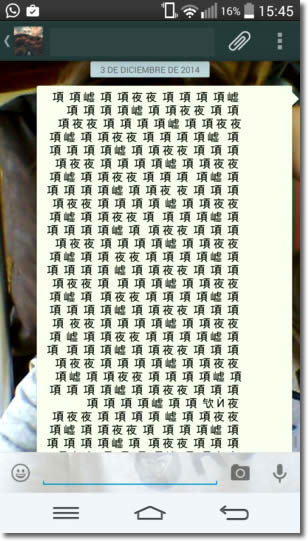 16% 15:45
3 DE DICIEMBRE DE 2014
項 項嘘 項 項夜夜 項 項 項 項嘘
項 項 項 項嘘 項 項夜夜 項 項
項夜夜 項 項 項 項嘘 項 項夜夜
項嘘 項 項夜夜 項 項 項 項嘘 項
項 項 項 項嘘 項 項夜夜 項 項 項
項夜夜 項 項 項 項嘘 項 項夜夜
項嘘 項 項夜夜 項 項 項 項嘘 項
項 項 項 項嘘 項 項夜夜 項 項 項
項夜夜 項 項 項 項嘘 項 項夜夜
項嘘 項 項夜夜 項 項 項 項嘘 項
項 項 項 項嘘 項 項夜夜 項 項 項
項夜夜 項 項 項 項嘘 項 項夜夜
項嘘 項 項夜夜 項 項 項 項嘘 項
項 項 項 項嘘 項 項夜夜 項 項 項
項夜夜 項 項 項 項嘘 項 項夜夜
項嘘 項 項夜夜 項 項 項 項嘘 項
項 項 項 項嘘 項 項夜夜 項 項 項
項夜夜 項 項 項 項嘘 項 項夜夜
項嘘 項 項夜夜 項 項 項 項嘘 項
項 項 項 項嘘 項 項夜夜 項 項 項
項夜夜 項 項 項 項嘘 項 項夜夜
項嘘 項 項夜夜 項 項 項 項嘘 項
項 項 項 項嘘 項 項夜夜 項 項 項
項 項 項 項嘘 項 項 И夜
項夜夜 項 項 項 項嘘 項 項夜夜
項嘘 項 項夜夜 項 項 項 項嘘 項
項 項 項 項嘘 項 項夜夜 項 項 項